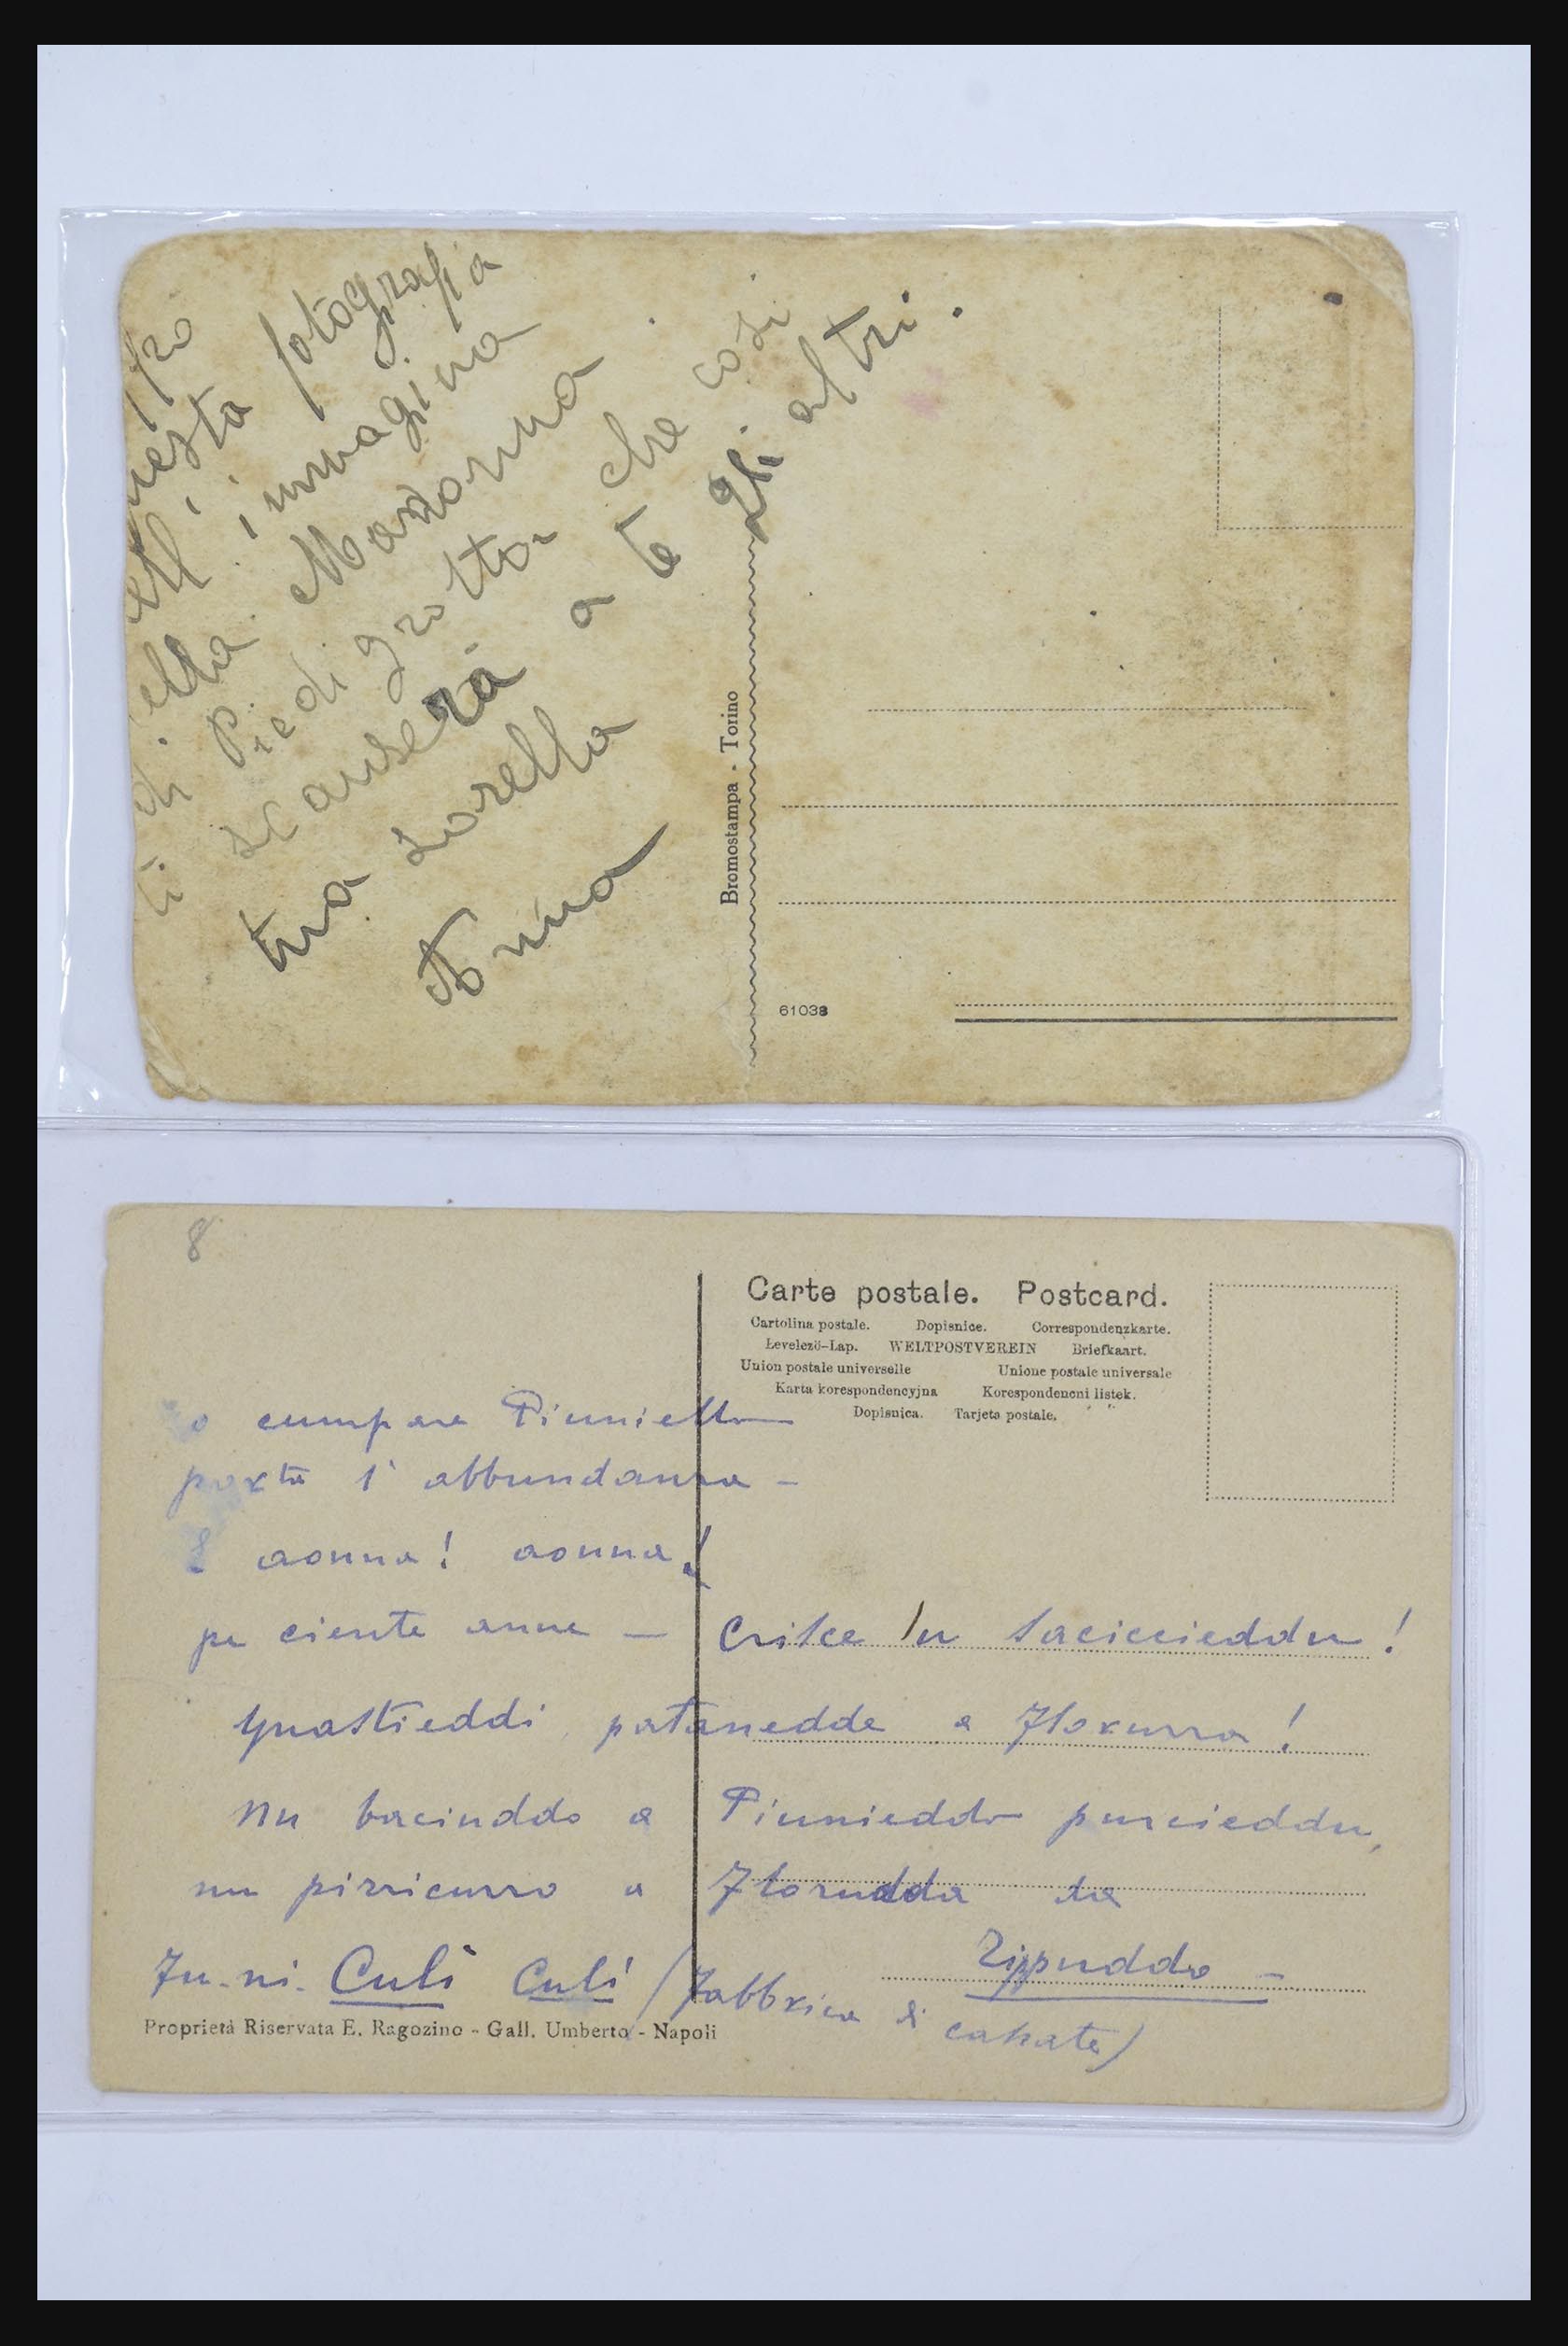 fotografia
all' immagina
ella Madonna
di Piedigrotta che così
ti scanserà a te gli altri.
tua sorella
Anna
Bromostampa - Torino
61038
8
Carte postale. Postcard.
Cartolina postale. Dopisnice. Correspondenzkarte.
Levelező-Lap. WELTPOSTVEREIN Briefkaart.
Union postale universelle Unione postale universale
Karta korespondencyjna Korespondencni listek.
Dopisnica. Tarjeta postale.
o cumpare Piuniello
porta l' abbundanza -
E aonna! aonna!
pe ciente anne -
Crisce lu saciccieddu!
guastieddi patanedde e
Nu baciuddo a Piunieddo purcieddu,
nu pizzicurro a
Zippuddo -
Fu-ni- Culì Culì (Fabbrica di
Proprietà Riservata E. Ragozino - Gall. Umberto - Napoli